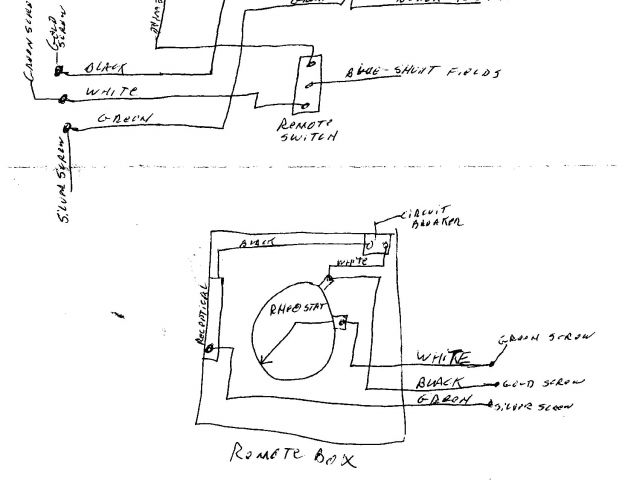 GREEN SCREW
GOLD SCREW
BLACK
WHITE
GREEN
SILVER SCREW
BLUE-SHUNT FIELDS
REMOTE
SWITCH
CIRCUIT
BREAKER
BLACK
WHITE
RHEOSTAT
RECEPTICAL
WHITE
BLACK
GREEN
GREEN SCREW
GOLD SCREW
SILVER SCREW
REMOTE BOX